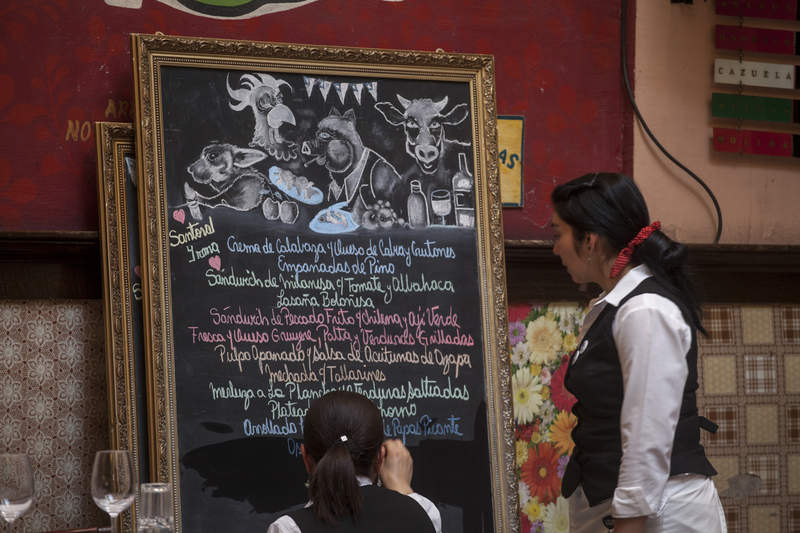 NO
AS.
CAZUELA
Santoral
Irana
Crema de Calabaza y Queso de Cabra y Crutones
Empanadas de Pino
Sandwich de Milanesa c/ Tomate y Albahaca
Lasaña Boloñesa
Sandwich de Pescado Frito c/ Chilena y Ají Verde
Fresca y Queso Gruyere, Palta y Verduras Grilladas
Pulpo Apanado y Salsa de Aceitunas de Azapa
Mechada c/ Tallarines
Merluza a La Plancha y Verduras Salteadas
horno
Arrollado de Papas Picante